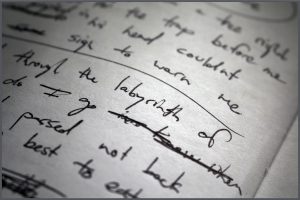 the right
the trap before me
his head couldn't
sign to warn me
through the labyrinth of
do I go
passed not back
best to eat